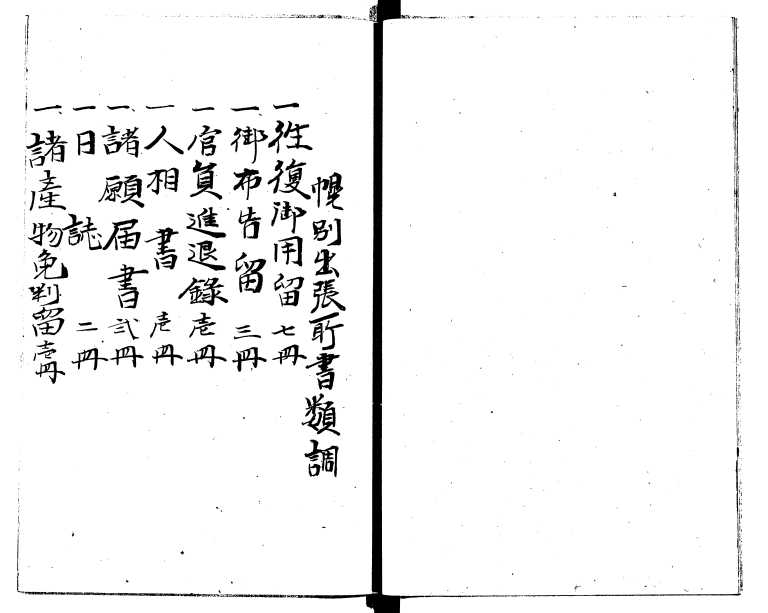 幌別出張所書類調
一往復御用留七冊
一御布告留三冊
一官員進退録壱冊
一人相書壱冊
一諸願届書弐冊
一日誌二冊
一諸産物免判留壱冊